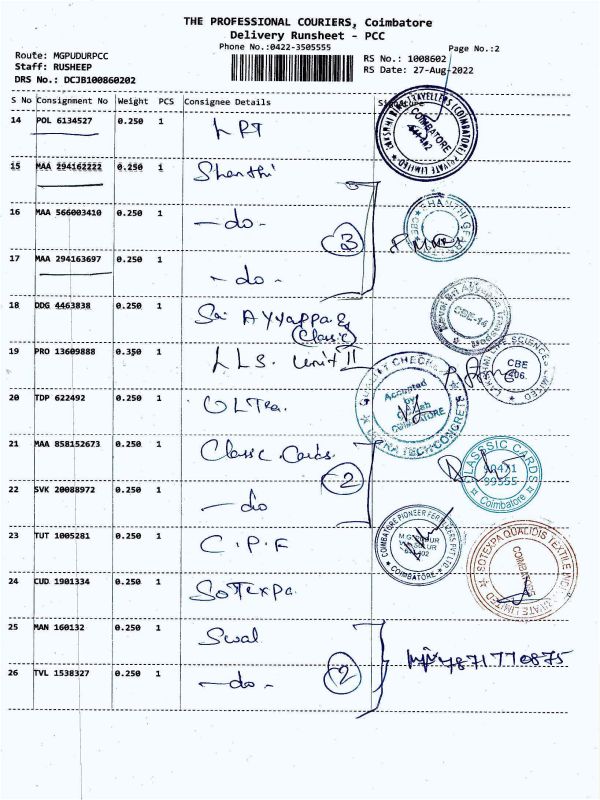 THE PROFESSIONAL COURIERS, Coimbatore
Delivery Runsheet - PCC
Phone No.:0422-3505555
Page No.:2
Route: MGPUDURPCC
Staff: RUSHEEP
DRS No.: DCJB100860202
RS No.: 1008602
RS Date: 27-Aug-2022
S No Consignment No Weight PCS Consignee Details Signature
14 POL 6134527 0.250 1 LRT
15 MAA 294162222 0.250 1 Shanthi
16 MAA 566003410 0.250 1 -do-
3
17 MAA 294163697 0.250 1 -do-
18 DDG 4463838 0.250 1 Sri Ayyappa
(Classic)
19 PRO 13609888 0.350 1 LLS. Unit II
20 TDP 622492 0.250 1 ULTra.
21 MAA 858152673 0.250 1 Classic Cards.
2
22 SVK 20088972 0.250 1 -do
23 TUT 1005281 0.250 1 C.P.F
24 CUD 1901334 0.250 1 Sotexpa.
25 MAN 160132 0.250 1 Swal
26 TVL 1538327 0.250 1 -do-
2
7871770875
COIMBATORE
CBE-14
CBE
QUALITY CHECK
Accepted
by
COIMBATORE
CLASSSIC CARDS
99555
Coimbatore
COIMBATORE PIONEER
COIMBATORE
SOTEXPA QUALIDIS TEXTILE
COIMBATORE